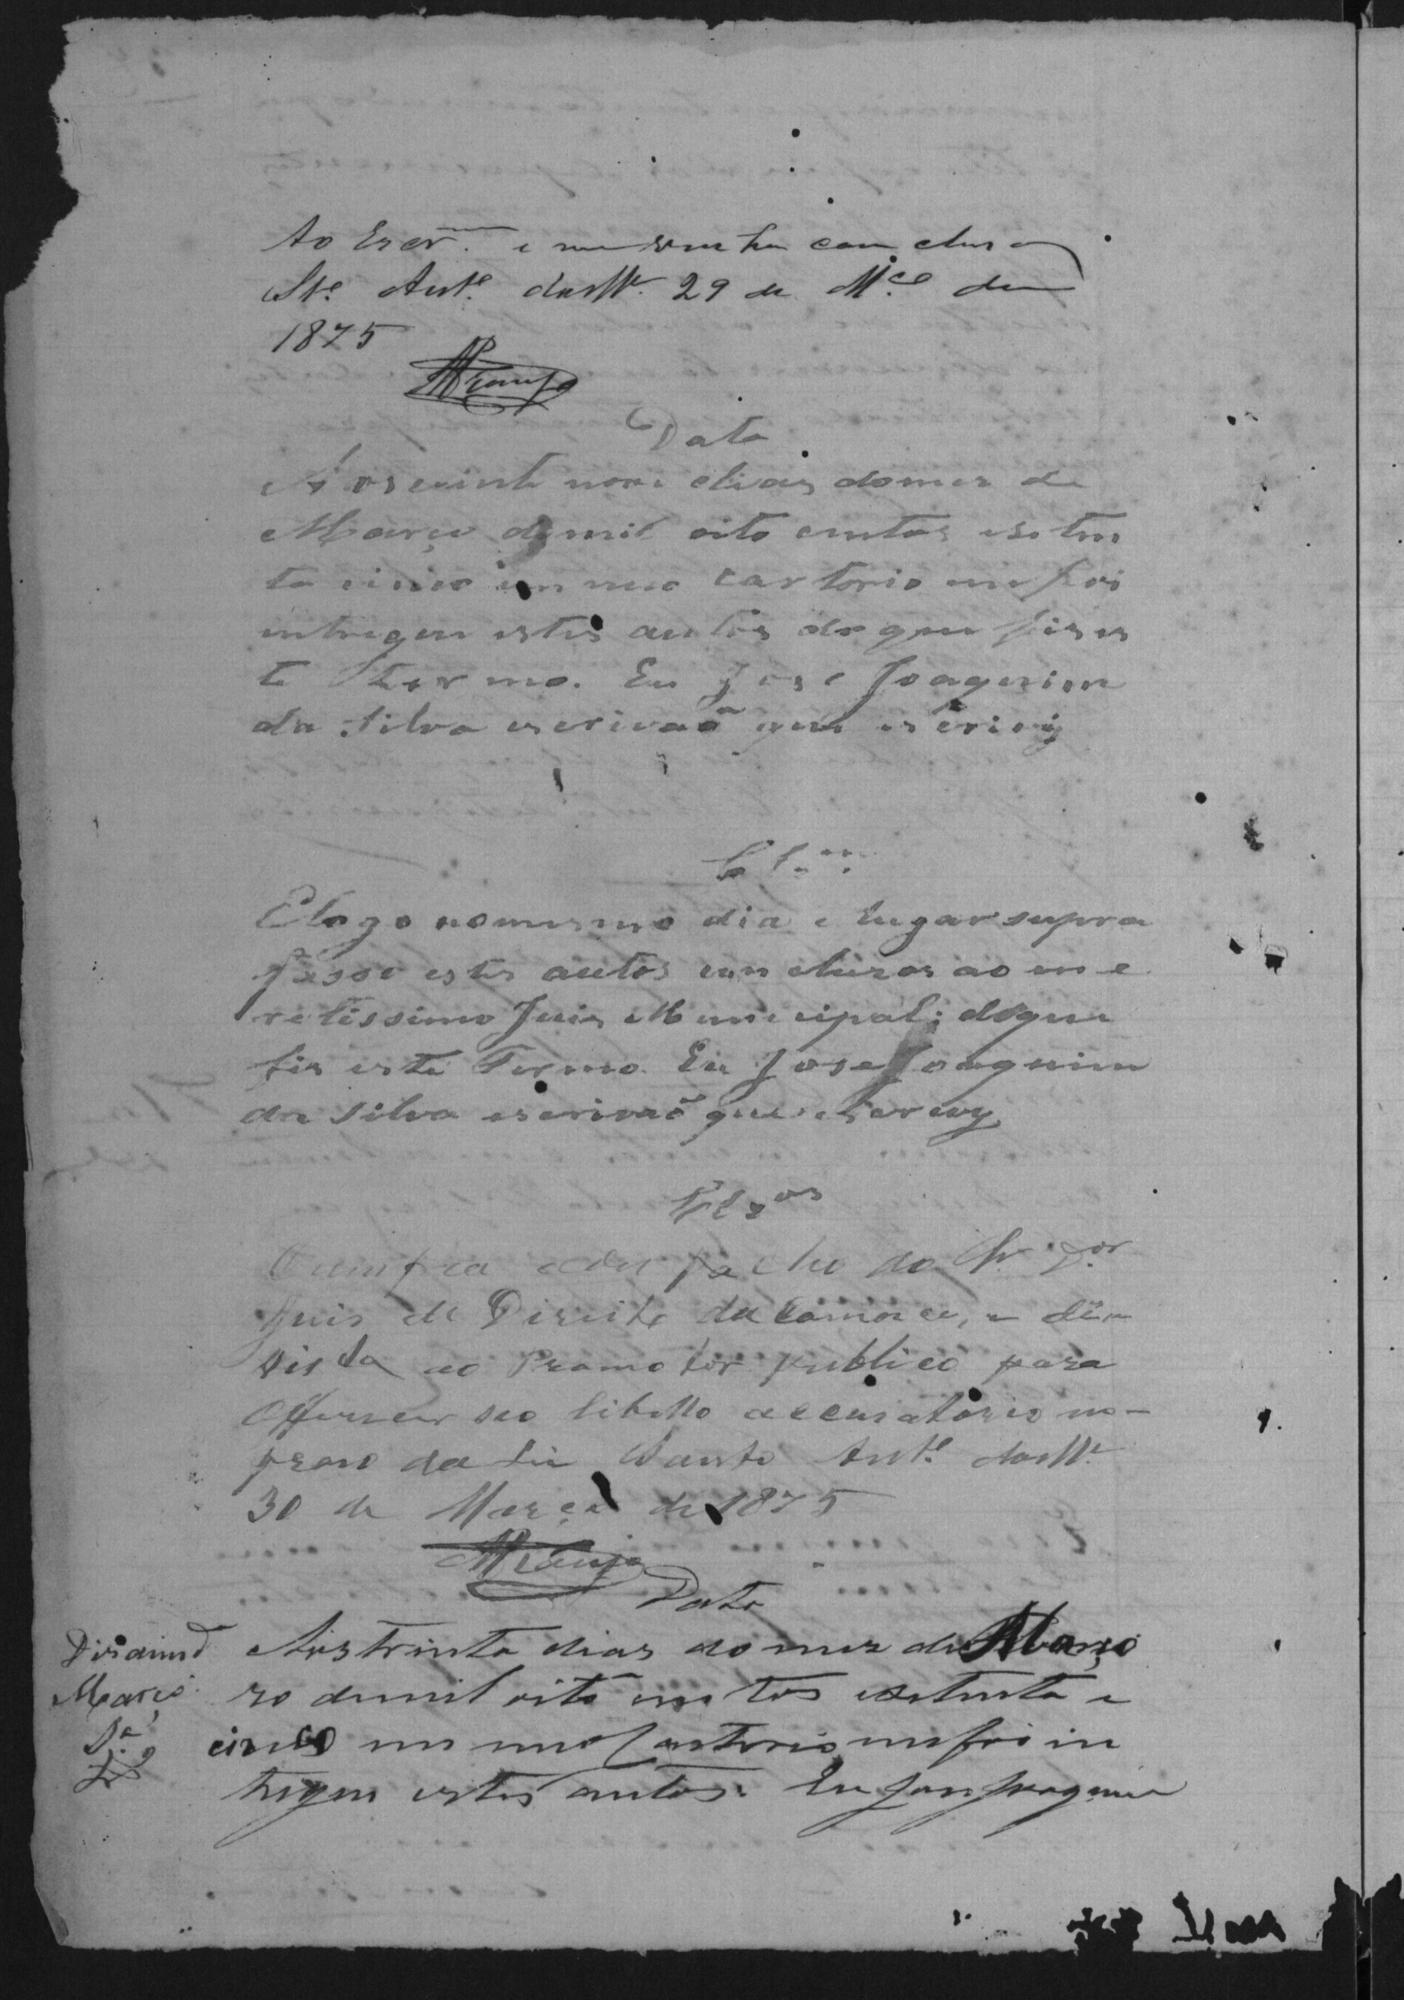 Ao Escr.m e me venha concluso
Sto. Anto. das Me. 29 de Mço de
1875
Araujo
Data
Aos vinte nove dias do mez de
Março de mil oito centos e seten
ta cinco em meo cartorio me foi
intregue estes autos do que fis es
te termo. Eu Jose Joaquim
da Silva escrivaõ que escrivy
Cl.os
E logo no mesmo dia e lugar supra
fasso estes autos concluzos ao me
retissimo Juis Municipal; do que
fis este Termo. Eu Jose Joaquim
da Silva escrivaõ que escrevy
Clzos
Cumpra o despacho do Sr. Dor
Juis de Direito da Comarca, e dê-se
vista ao Promotor publico para
offerecer seo libello accusatorio no
praso da lei Santo Anto. das Me.
30 de Março de 1875
Araujo
Data
Aos trinta dias do mez de Março
ro de mil oito centos e setenta e
cinco em meo Cartorio me foi in
tregue estes autos. Eu Jose Joaquim
Março
Sa